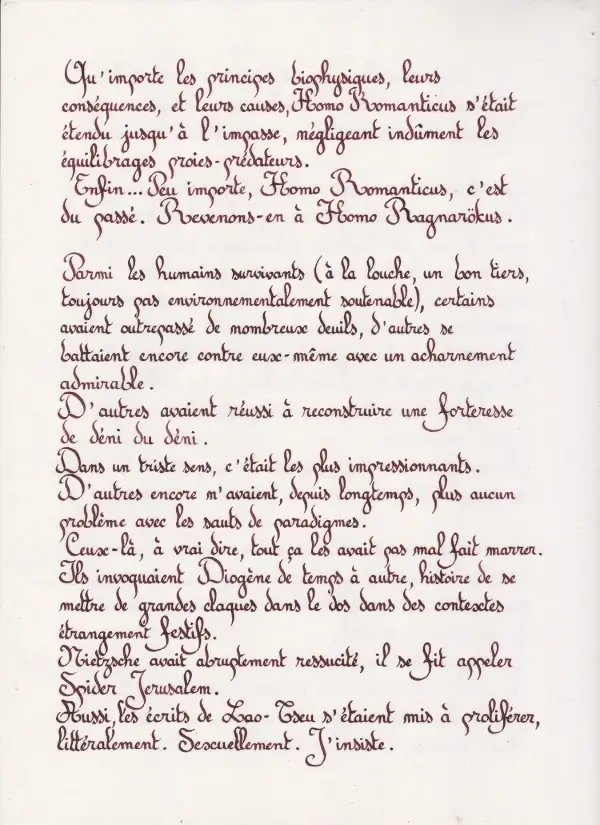 Qu'importe les principes biophysiques, leurs
conséquences, et leurs causes, Homo Romanticus s'était
étendu jusqu'à l'impasse, négligeant indûment les
équilibrages proies-prédateurs.
Enfin... Peu importe, Homo Romanticus, c'est
du passé. Revenons-en à Homo Ragnarökus.
Parmi les humains survivants (à la louche, un bon tiers,
toujours pas environnementalement soutenable), certains
avaient outrepassé de nombreux deuils, d'autres se
battaient encore contre eux-même avec un acharnement
admirable.
D'autres avaient réussi à reconstruire une forteresse
de déni du déni.
Dans un triste sens, c'était les plus impressionnants.
D'autres encore n'avaient, depuis longtemps, plus aucun
problème avec les sauts de paradigmes.
Ceux-là, à vrai dire, tout ça les avait pas mal fait marrer.
Ils invoquaient Diogène de temps à autre, histoire de se
mettre de grandes claques dans le dos dans des contextes
étrangement festifs.
Nietzsche avait abruptement ressucité, il se fit appeler
Spider Jerusalem.
Aussi, les écrits de Lao-Tseu s'étaient mis à proliférer,
littéralement. Sexuellement. J'insiste.